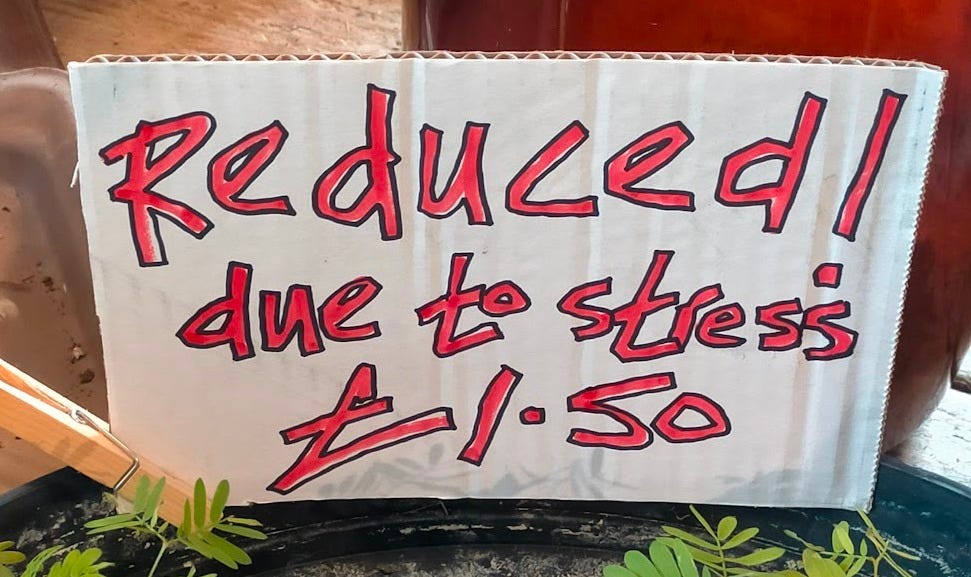 Reduced!
due to stress
£1.50